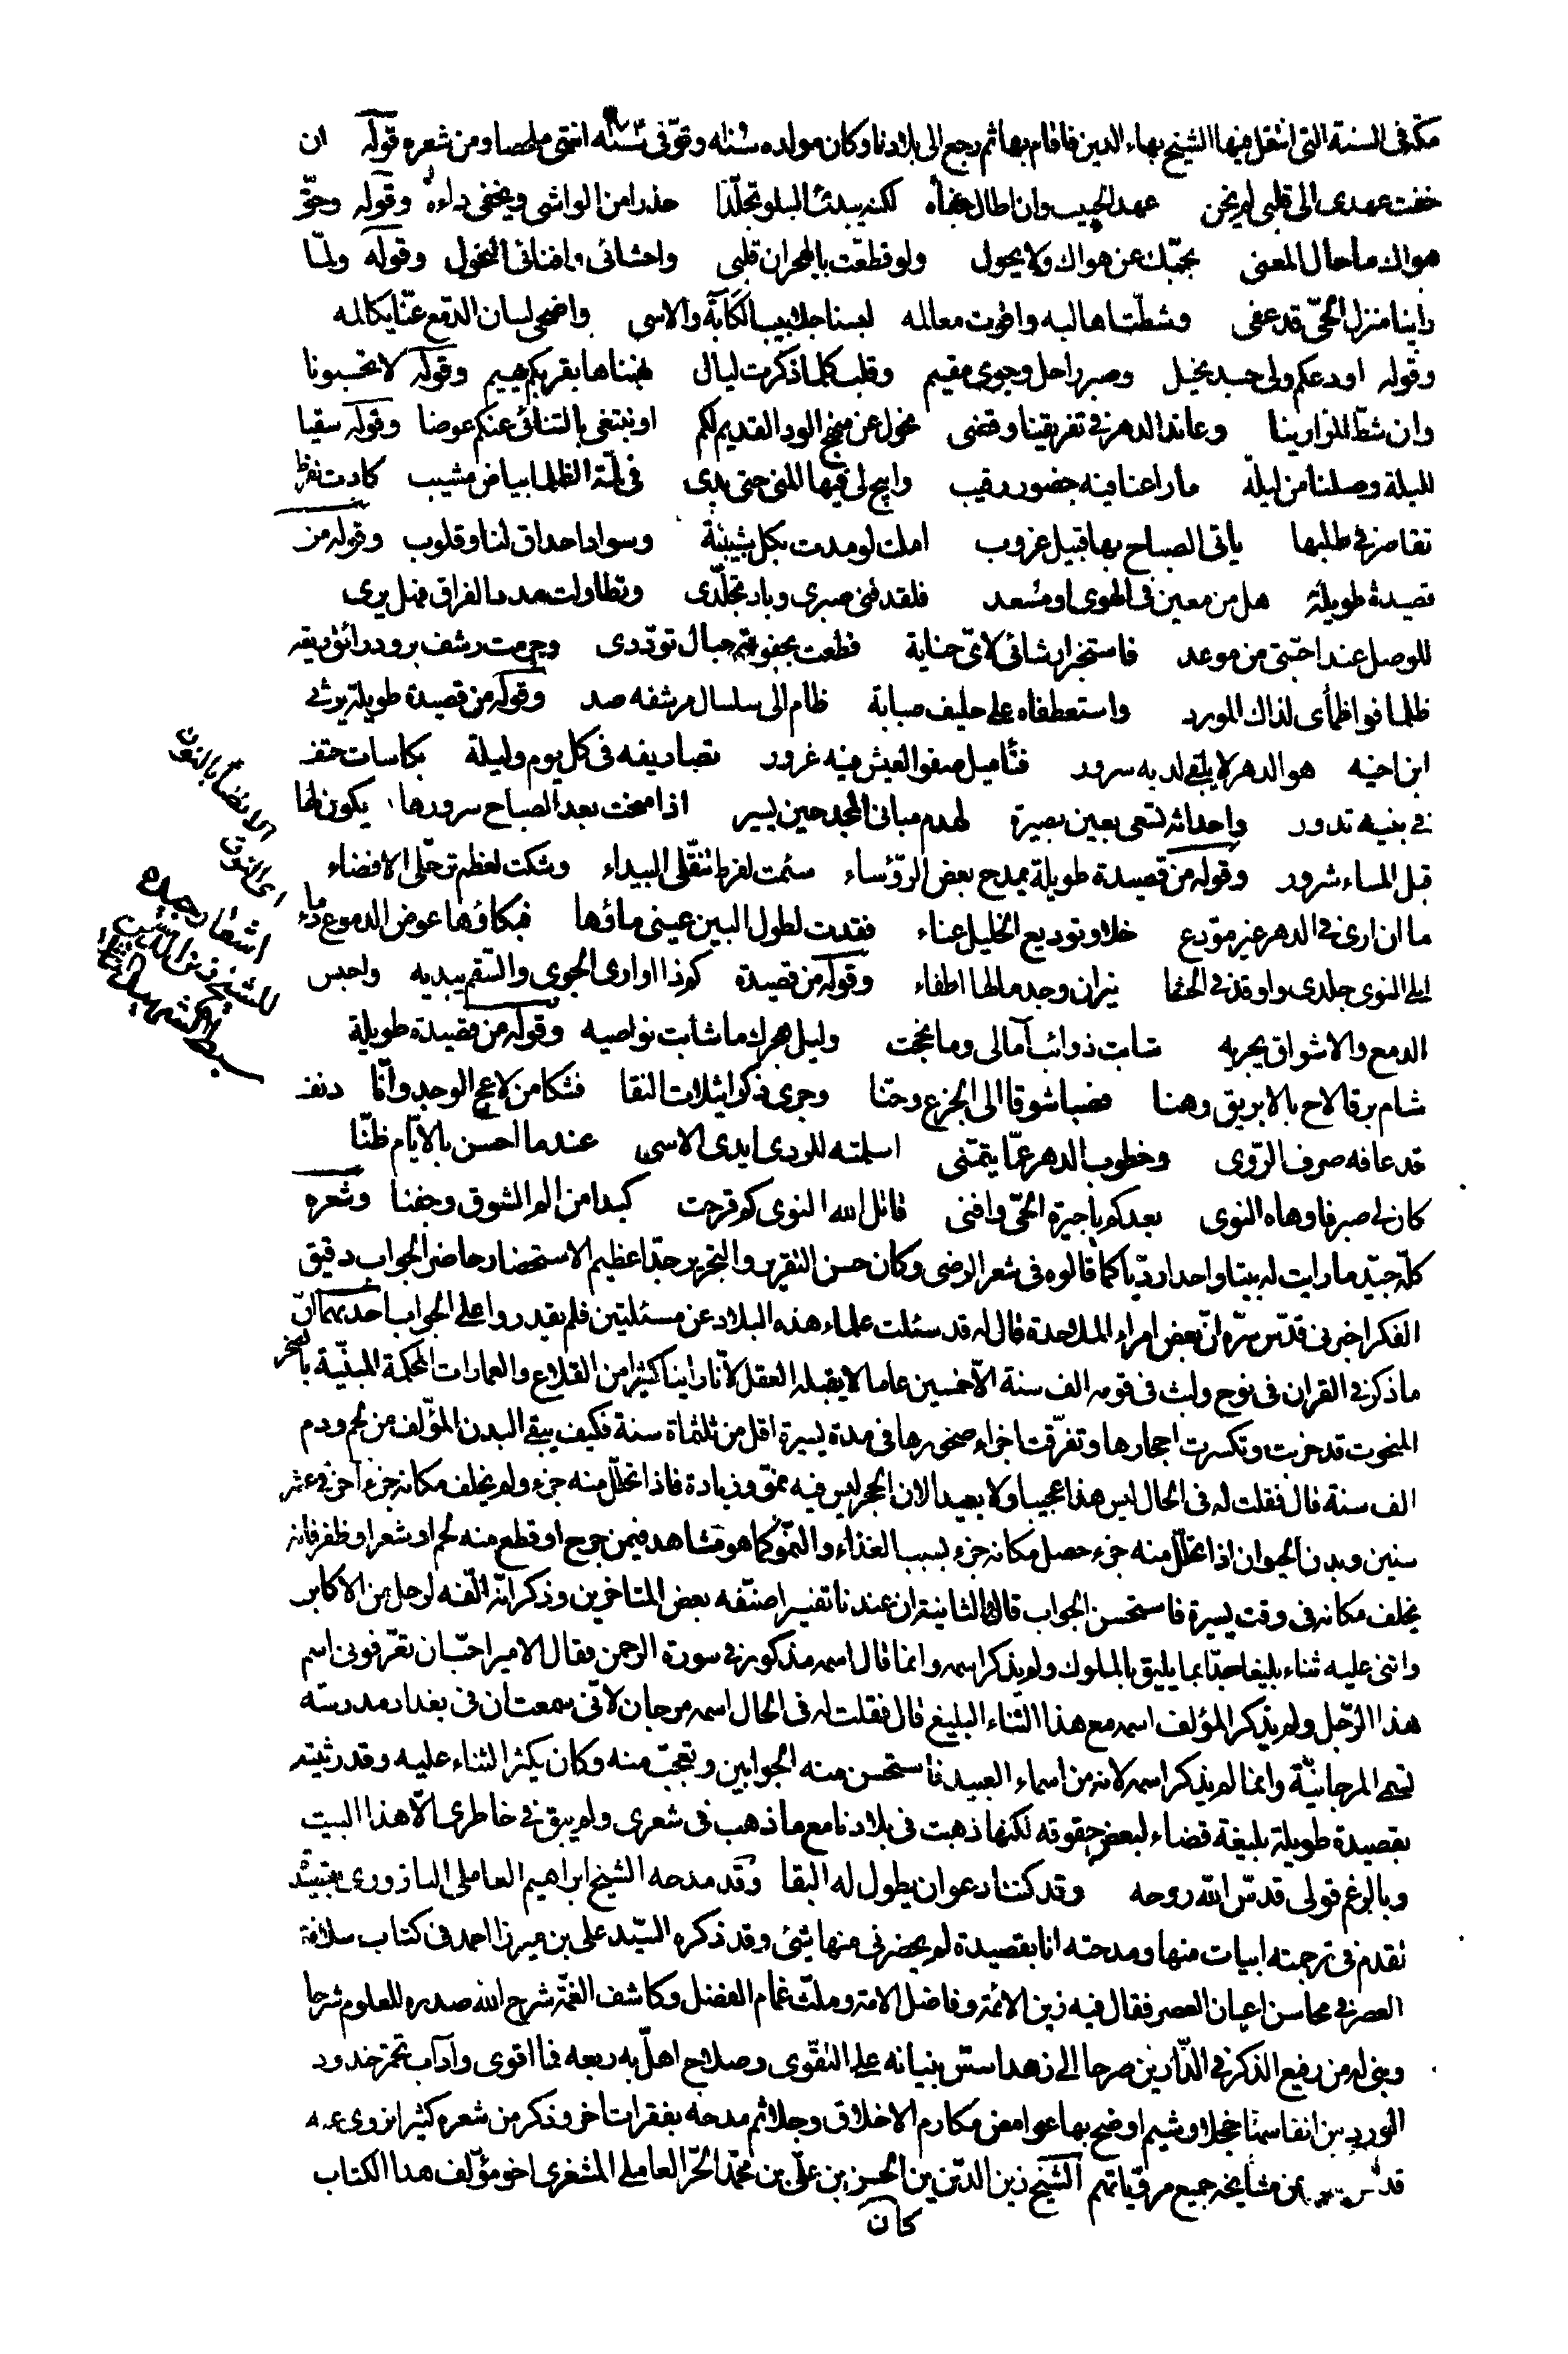 مكة فى السنة التى انتقل فيها الشيخ بهاء الدين فاقام بها ثم رجع الى بلادنا وكان مولده سنة وتوفى سنة انتهى ملخصا ومن شعره قوله ان
خنت عهدى الى قلبى لم يخن عهد الحبيب وان اطال جفاه لكنه يبدى السلو تجلدا حذرا من الواشى ويخفى داءه وقوله وحق
هواك ما حال المعنى بحبك عن هواك ولا يحول ولو قطعت بالهجران قلبى واحشائى واضنانى النحول وقوله ولما
راينا منزل الحى قد عفى وشطت اهاليه واقوت معالمه لبسنا جلابيب الكآبة والاسى واضحى لسان الدمع عنا يكالمه
وقوله اودعكم ولى جسد نحيل وصبر راحل وجوى مقيم وقلب كلما ذكرت ليال نهبناها بقربكم يهيم وقوله لا تحسبونا
وان شط المزار بنا وعاند الدهر فى تفريقنا وقضى نحول عن منهج الود القديم لكم او نبتغى بالتنائى عنكم عوضا وقوله سقيا
لليلة وصلنا من ليلة ما راعنا فيه حضور رقيب وابيح لى فيها المنى حتى بدى فى لمة الظلما بياض مشيب كادت لفرط
تقاصر فى طلبها ياتى الصباح بها قبيل غروب املت لو مدت بكل شبيبة وسواد احداق لنا وقلوب وقوله من
قصيدة طويلة هل من معين فى الهوى او مسعد فلقد فنى صبرى وباد تجلدى وتطاولت مدد الفراق فهل يرى
للوصل عند احبتى من موعد فاستخبرا رشائى لاى جناية قطعت بجفوتهم حبال توددى وحرمت رشف برود رائق ريقه
ظلما فوا ظمأى لذاك المورد واستعطفاه على حليف صبابة ظام الى سلسال مرشفه صد وقوله من قصيدة طويلة يرثى
ابن اخيه هو الدهر لا يلقى لديه سرور فتأميل صفو العيش منه غرور تصاريفه فى كل يوم وليلة بكاسات حتف
فى بنيه تدور واحداثه تسعى بعين بصيرة لهدم مبانى المجد حين يسير اذا منحت بعد الصباح سرورها يكون لها
قبل المساء شرور وقوله من قصيدة طويلة يمدح بعض الرؤساء سئمت لفرط تنقلى البيداء وشكت لعظم ترحلى الانضاء
ما ان ارى فى الدهر غير مودع خلا وتوديع الخليل عناء فقدت لطول البين عينى ماؤها فبكاؤها عوض الدموع دماء
ابلى النوى جلدى واوقد فى الحشا نيران وجد ما لها اطفاء وقوله من قصيدة كم ذا اوارى الجوى والسقم يبديه واحبس
الدمع والاشواق يجريه شابت ذوائب آمالى وما نجحت وليل هجرك ما شابت نواصيه وقوله من قصيدة طويلة
شام برقا لاح بالابريق وهنا فصبا شوقا الى الجزع وحنا وجرى ذكر اثيلات النقا فشكا من لاعج الوجد وانا دنف
قد عافه صرف الردى وخطوب الدهر عما يتمنى اسلمته للردى ايدى الاسى عندما احسن بالايام ظنا
كان لى صبر فاوهاه النوى بعدكم يا جيرة الحى وافنى قاتل الله النوى كم قرحت كبدا من الم الشوق وجفنا وشعره
كله جيد ما رايت له بيتا واحدا رديا كما قالوه فى شعر الرضى وكان حسن التقرير والتحرير جدا عظيم الاستحضار حاضر الجواب دقيق
الفكر اخبرنى قدس سره ان بعض امراء الملاحدة قال له قد سئلت علماء هذه البلاد عن مسئلتين فلم يقدروا على الجواب احدهما ان
ما ذكر فى القران فى نوح ولبث فى قومه الف سنة الا خمسين عاما لا يقبله العقل لانا راينا كثيرا من القلاع والعمارات المحكمة المبنية بالصخر
المنحوت قد خربت وتكسرت احجارها وتفرقت اجزاء صخورها فى مدة يسيرة اقل من ثلثماة سنة فكيف يبقى البدن المؤلف من لحم ودم
الف سنة قال فقلت له فى الحال ليس هذا عجيبا ولا بعيدا لان الحجر ليس فيه نمو وزيادة فاذا تحلل منه جزء ولم يخلف مكانه جزء آخر فى عشر
سنين وبدن الحيوان اذا تحلل منه جزء حصل مكانه جزء بسبب الغذاء والنمو كما هو مشاهد فيمن جرح او قطع منه لحم او شعر او ظفر فانه
يخلف مكانه فى وقت يسيرة فاستحسن الجواب قال الثانية ان عندنا تفسيرا صنفه بعض المتاخرين وذكر انه الفه لرجل من الاكابر
واثنى عليه ثناء بليغا جدا بما يليق بالملوك ولم يذكر اسمه وانما قال اسمه مذكور فى سورة الرحمن فقال الامير احب ان تعرفونى اسم
هذا الرجل ولم يذكر المؤلف اسمه مع هذا الثناء البليغ قال فقلت له فى الحال اسمه مرجان لانى سمعت ان فى بغداد مدرسة
تسمى المرجانية وانما لم يذكر اسمه لانه من اسماء العبيد فاستحسن منه الجوابين وتعجب منه وكان يكثر الثناء عليه وقد رثيته
بقصيدة طويلة بليغة قضاء لبعض حقوقه لكنها ذهبت فى بلادنا مع ما ذهب فى شعرى ولم يبق فى خاطرى الا هذا البيت
وبالرغم قولى قدس الله روحه وقد كنت ادعو ان يطول له البقا وقد مدحه الشيخ ابراهيم العاملى البازورى بقصيدة
تقدم فى ترجمته ابيات منها ومدحته انا بقصيدة لم يحضرنى منها شئ وقد ذكره السيد على بن ميرزا احمد فى كتاب سلافة
العصر فى محاسن اعيان العصر فقال فيه زين الائمة وفاضل الامة وملث غمام الفضل وكاشف الغمة شرح الله صدره للعلوم شرحا
وبنى له من رفيع الذكر فى الدارين صرحا الى زهد اسس بنيانه على التقوى وصلاح اهل به ربعه فما اقوى وآداب تحمر خدود
الورد من انفاسها خجلا وشيم اوضح بها غوامض مكارم الاخلاق وجلا ثم مدحه بفقرات اخر وذكر من شعره كثيرا نروى عنه
قدس سره عن مشايخه جميع مروياتهم الشيخ زين الدين بن الحسن بن على بن محمد الحر العاملى المشغرى اخو مؤلف هذا الكتاب
كان
الانضاء بالنون
اى النوق
اشعار جيده
للشيخ زين الدين
سبط الشهيد الثانى